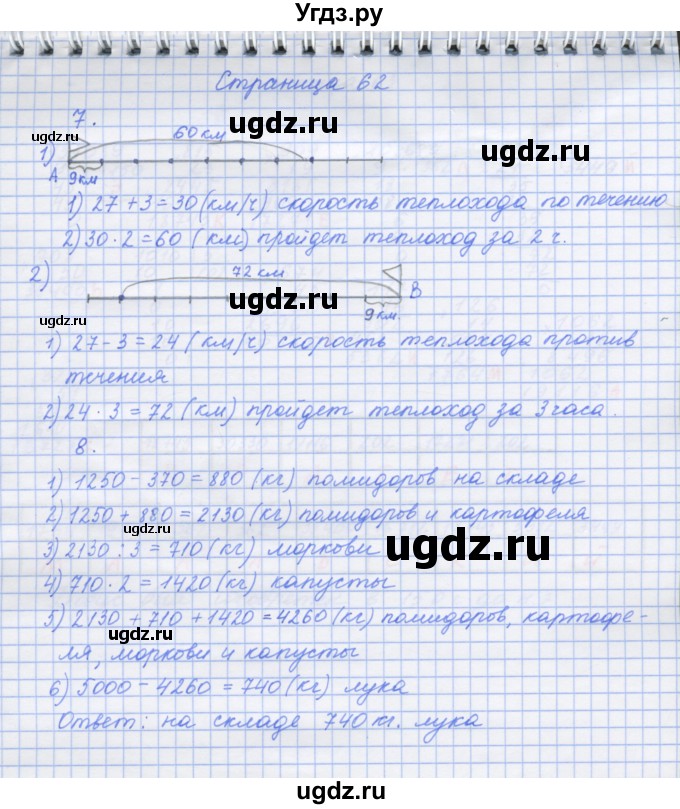 Угдз.ру
Страница 62
7.
ugdz.ru
ugdz.ru
60 км
1)
ugdz.ru
А 9км
1) 27 + 3 = 30 (км/ч) скорость теплохода по течению
2) 30 · 2 = 60 (км) пройдет теплоход за 2 ч.
2)
72 км
ugdz.ru
В
9 км.
ugdz.ru
1) 27 - 3 = 24 (км/ч) скорость теплохода против
течения
2) 24 · 3 = 72 (км) пройдет теплоход за 3 часа.
8.
1) 1250 - 370 = 880 (кг) помидоров на складе
2) 1250 + 880 = 2130 (кг) помидоров и картофеля
ugdz.ru
3) 2130 : 3 = 710 (кг) моркови
ugdz.ru
4) 710 · 2 = 1420 (кг) капусты
5) 2130 + 710 + 1420 = 4260 (кг) помидоров, картофе-
ugdz.ru
ля, моркови и капусты
6) 5000 - 4260 = 740 (кг) лука
Ответ: на складе 740 кг. лука
ugdz.ru
ugdz.ru
ugdz.ru